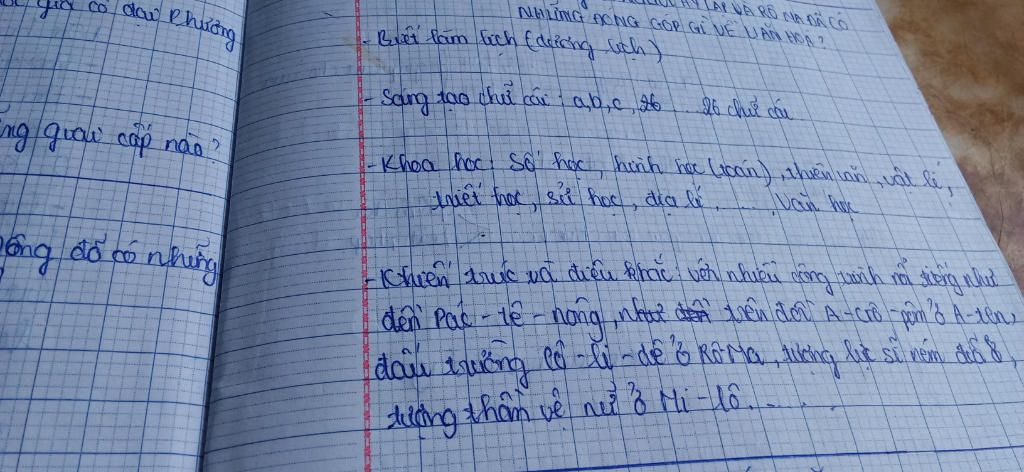 giả có đai phương
ng giai cấp nào?
ống đó có những
HY LẠP VÀ RÔ MA ĐÃ CÓ
NHỮNG ĐÓNG GÓP GÌ VỀ VĂN HÓA?
- Biết làm lịch (dương lịch)
- Sáng tạo chữ cái: a,b,c, ... 26 chữ cái
- Khoa học: Số học, hình học (toán), thiên văn, vật lí,
triết học, sử học, địa lí, ..... văn học
- Khiến trúc và điêu khắc: với nhiều công trình nổi tiếng như
đền Pác-tê-nông, trên đồi A-crô-pôn ở A-ten,
đấu trường Cô-li-dê ở Rô Ma, tượng lực sĩ ném đĩa,
tượng thần vệ nữ ở Mi-lô.....